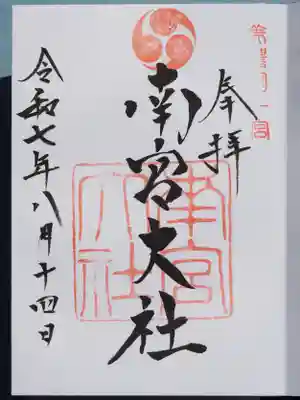 一宮
奉拝
南宮大社
南宮
大社
令和七年八月十四日